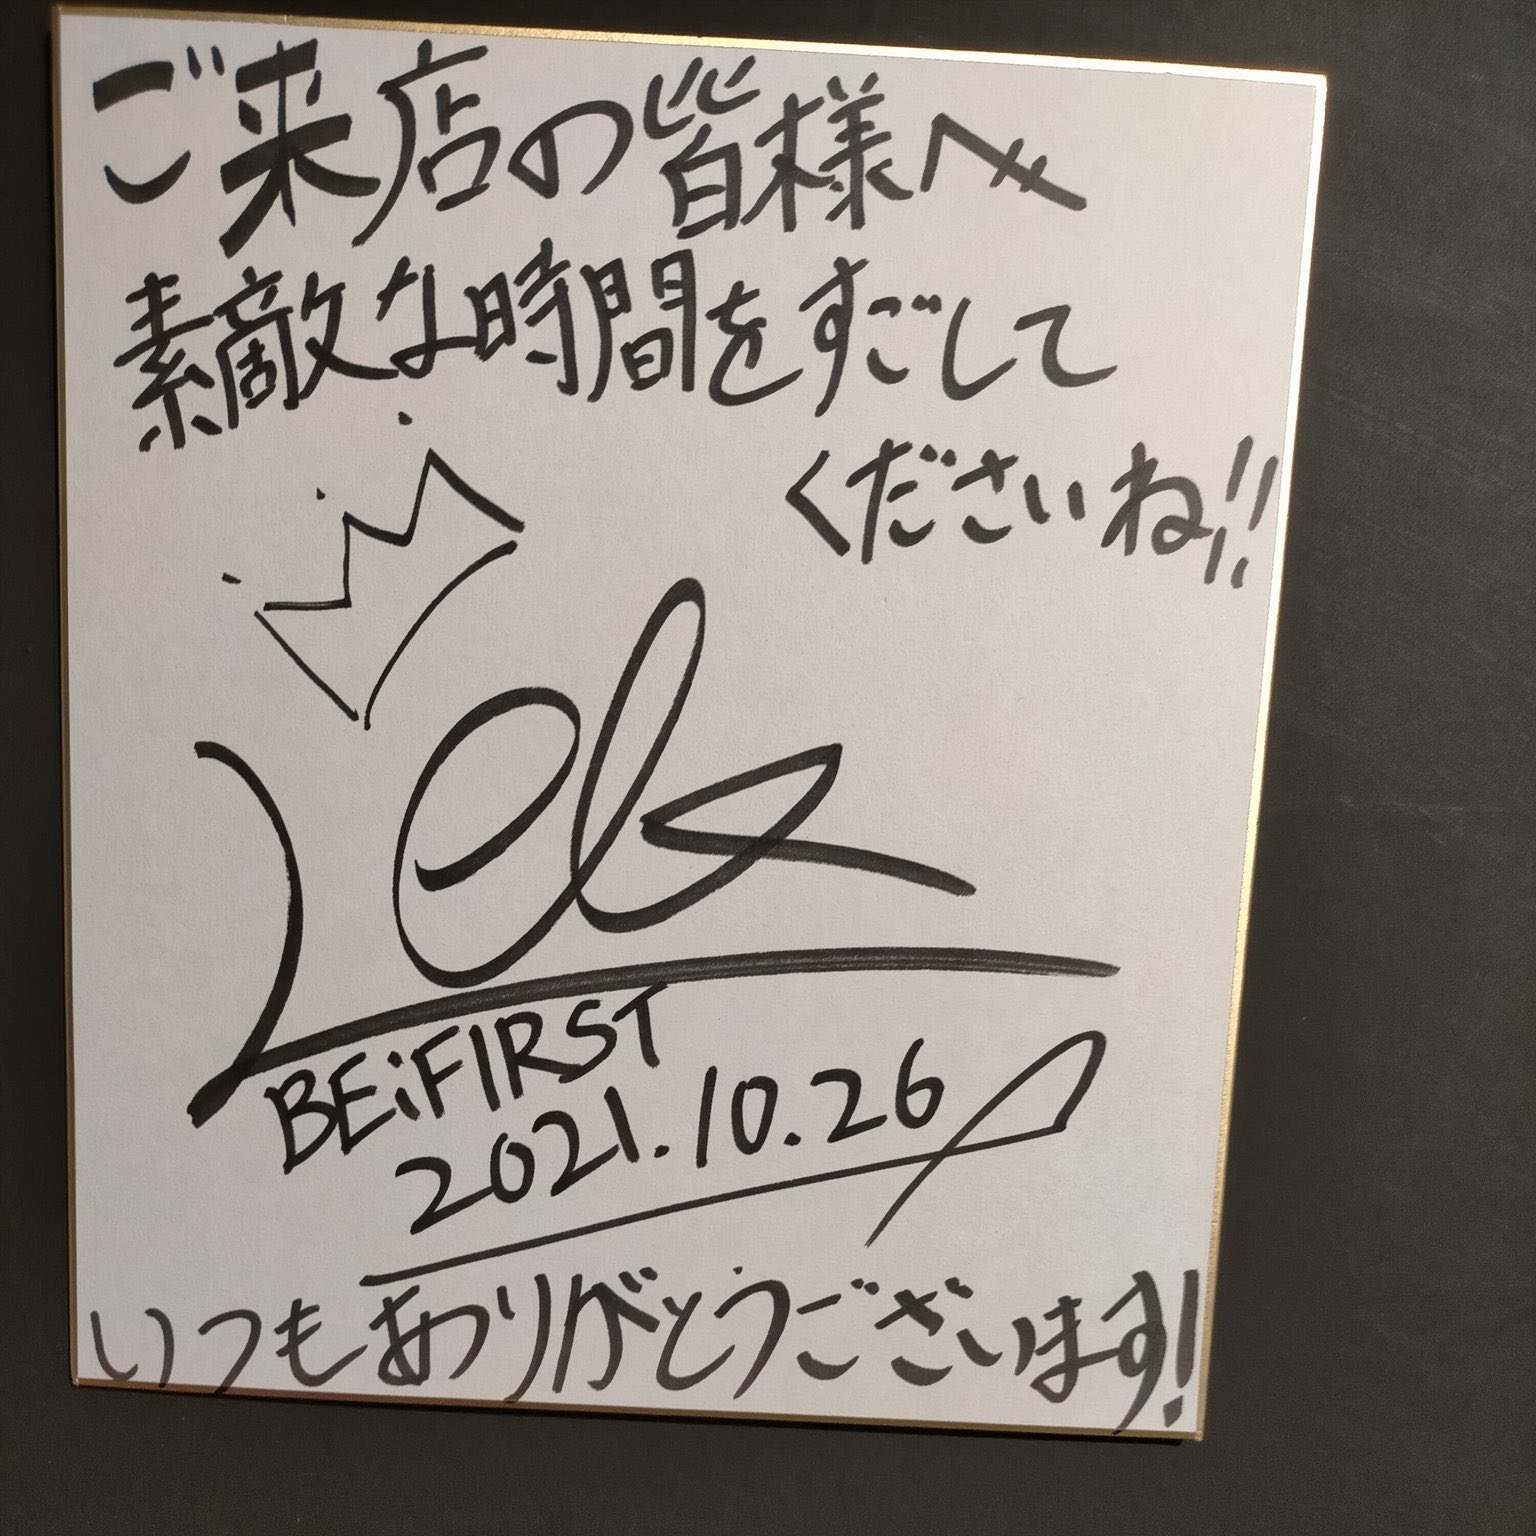 ご来店の皆様へ
素敵な時間をすごして
くださいね!!
Leo
BE:FIRST
2021.10.26
いつもありがとうございます!